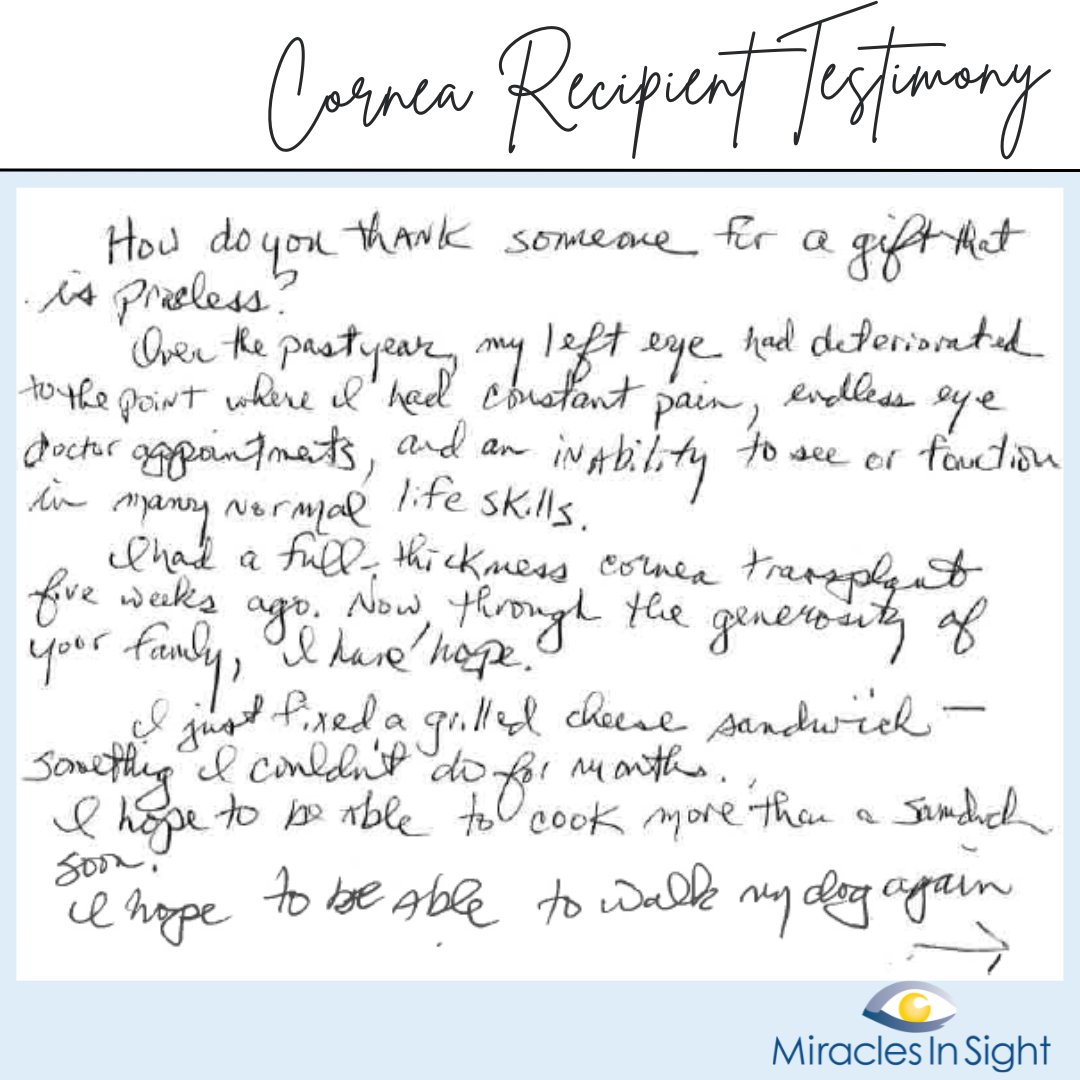 Cornea Recipient Testimony
How do you thANK someone for a gift that
is priceless?
Over the past year, my left eye had deteriorated
to the point where I had constant pain, endless eye
doctor appointments, and an inAbility to see or function
in many normal life skills.
I had a full-thickness cornea transplant
five weeks ago. Now, through the generosity of
your family, I have hope.
I just fixed a grilled cheese sandwich —
something I couldn't do for months.
I hope to be Able to cook more than a sandwich
soon.
I hope to be Able to walk my dog again
→
Miracles In Sight